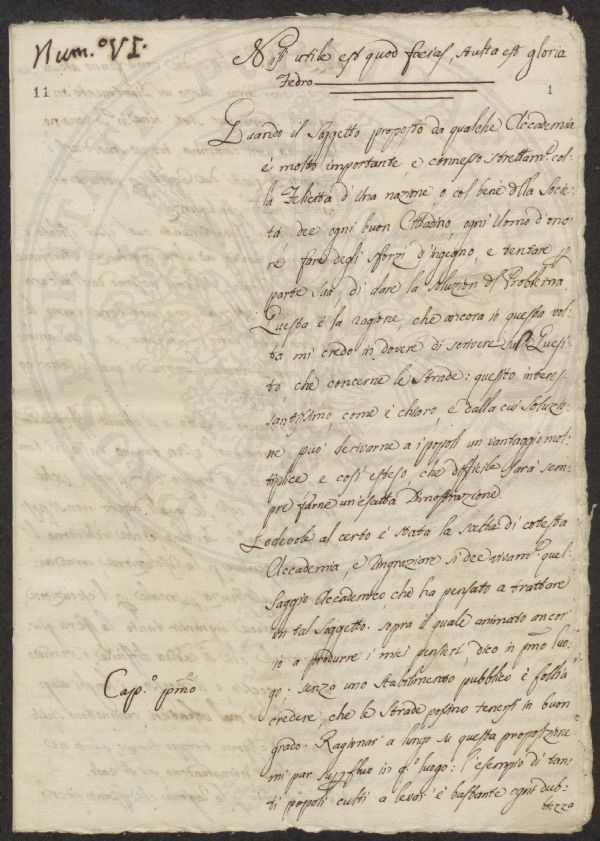 Num.º VI.
Nisi utile est quod facias, stulta est gloria
Fedro
11
1
Quando il Soggetto proposto da qualche Accademia
è molto importante, e connesso strettam.e col-
la Felicità d'una nazione, o col bene della Socie-
tà dee ogni buon Cittadino, ogni Uomo d'ono-
re fare degli sforzi d'ingegno, e tentare p
parte sua, di dare la Soluzion del Problema.
Questa è la ragione, che ancora io questa vol-
ta mi credo in dovere di scrivere sul Quesi-
to, che concerne le Strade: quesito interes-
santissimo, come è chiaro, e dalla cui Soluzio-
ne può derivarne a i popoli un vantaggio mol-
tiplice e così esteso, che difficile sarà sem-
pre farne un'esatta Dimostrazione.
Lodevole al certo è stata la scelta di cotesta
Accademia, e ringraziare si dee vivam.e quel
Saggio Accademico, che ha pensato a trattare
un tal Soggetto. sopra il quale animato ancor
io a produrre i miei pensieri, dico in pmo luo-
go. senza uno Stabilimento pubblico è follia
Cap.º pmo
credere, che le Strade possino tenersi in buon
grado. Ragionar a lungo su questa proposizione
mi par superfluo in qº luogo: l'esempio di tan-
ti popoli culti a levar è bastante ogni dub-
biezza